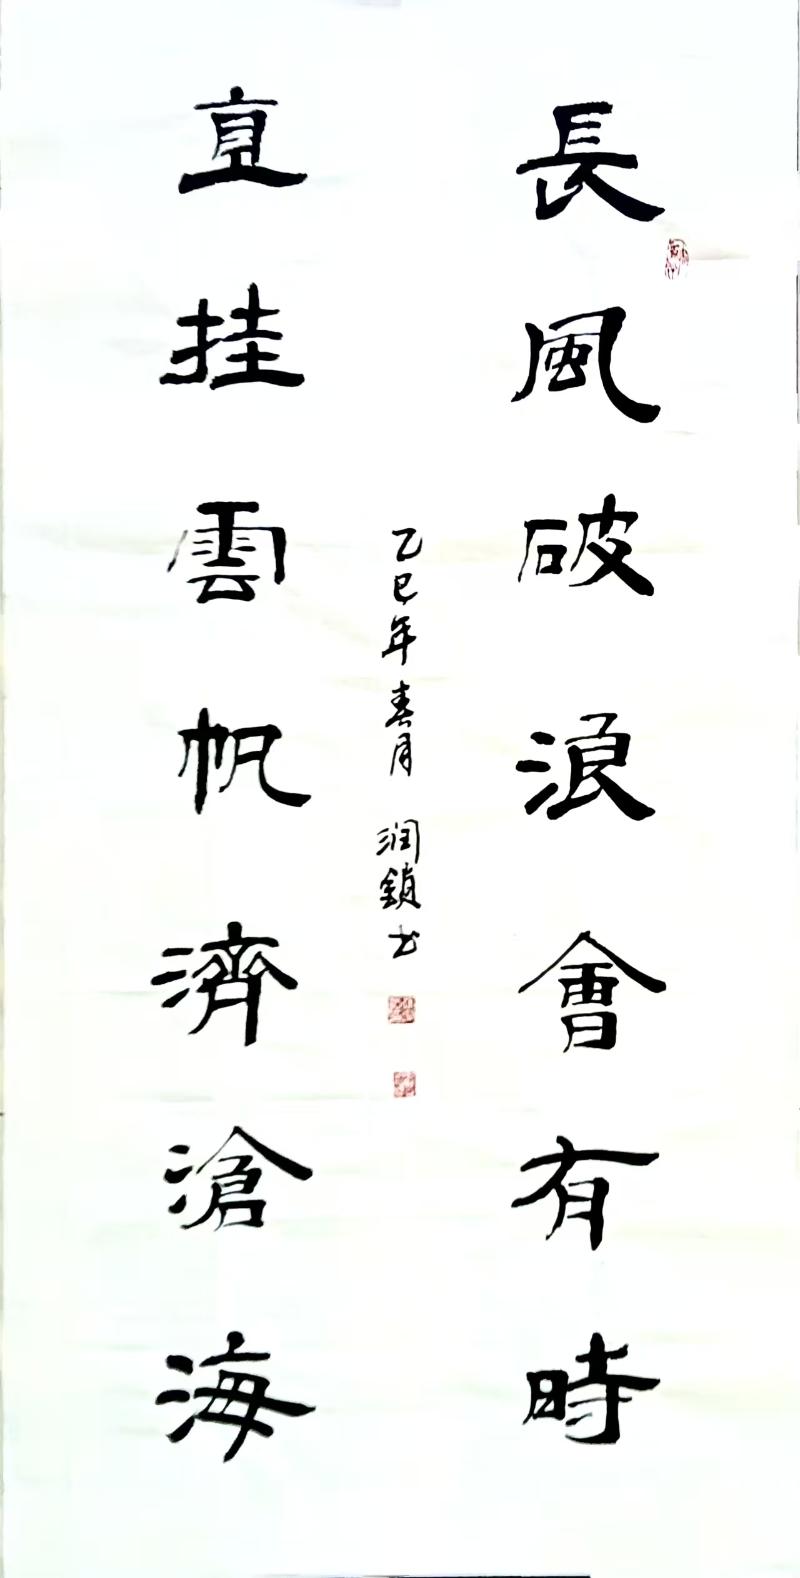 長風破浪會有時
直挂雲帆濟滄海
乙巳年春月 润鎖书